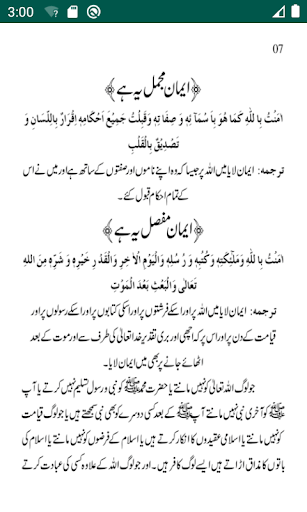 3:00
07
﴿ایمان مجمل یہ ہے﴾
اٰمَنْتُ بِا للّٰهِ كَمَا هُوَ بِاَ سْمَآ ئِهٖ وَ صِفَا تِهٖ وَقَبِلْتُ جَمِيْعَ اَحْكَامِهٖ اِقْرَارٌ بِاللِّسَانِ وَ
تَصْدِيْقٌ بِالْقَلْبِ
ترجمہ: ایمان لایا میں اللہ پر جیسا کہ وہ اپنے ناموں اور صفتوں کے ساتھ ہے اور میں نے اس
کے تمام احکام قبول کئے۔
﴿ایمان مفصل یہ ہے﴾
اٰمَنْتُ بِا للّٰهِ وَمَلٰٓئِكَتِهٖ وَكُتُبِهٖ وَ رُ سُلِهٖ وَالْيَوْمِ الْاٰ خِرِ وَ الْقَدْ رِ خَيْرِهٖ وَ شَرِّهٖ مِنَ اللهِ
تَعَالٰى وَالْبَعْثِ بَعْدَ الْمَوْتِ
ترجمہ: ایمان لایا میں اللہ پر اور اسکے فرشتوں پر اور اسکی کتابوں پر اور اسکے رسولوں پر اور
قیامت کے دن پر اور اس پر کہ اچھی اور بری تقدیر خدا تعالیٰ کی طرف سے ہے اور موت کے بعد
اٹھائے جانے پر بھی میں ایمان لایا۔
جو لوگ اللہ تعالیٰ کو نہیں مانتے یا حضرت محمد ﷺ کو نبی و رسول تسلیم نہیں کرتے یا آپ
ﷺ کو آخری نبی نہیں مانتے آپ ﷺ کے بعد کسی دوسرے کو بھی نبی سمجھتے ہیں یا جو لوگ قیامت
کو نہیں مانتے یا اسلامی عقیدوں کا انکار کرتے ہیں یا اسلام کے فرضوں کو نہیں مانتے یا اسلام کی
باتوں کا مذاق اڑاتے ہیں ایسے لوگ کافر ہیں۔ اور جو لوگ اللہ کے علاوہ کسی کی عبادت کرتے